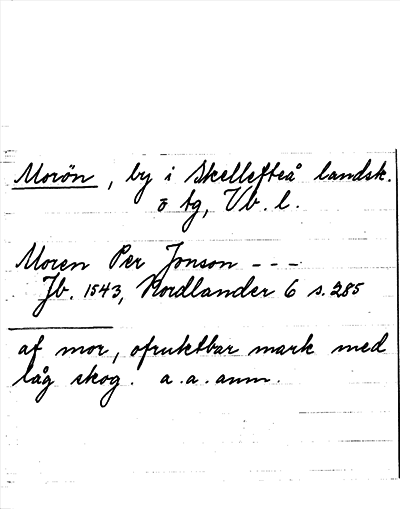 Morön, by i Skellefteå landsk.
o tg, Vb. l.
Moren Per Jonson - - -
Jb. 1543, Nordlander 6 s. 285
af mor, ofruktbar mark med
låg skog. a. a. anm.